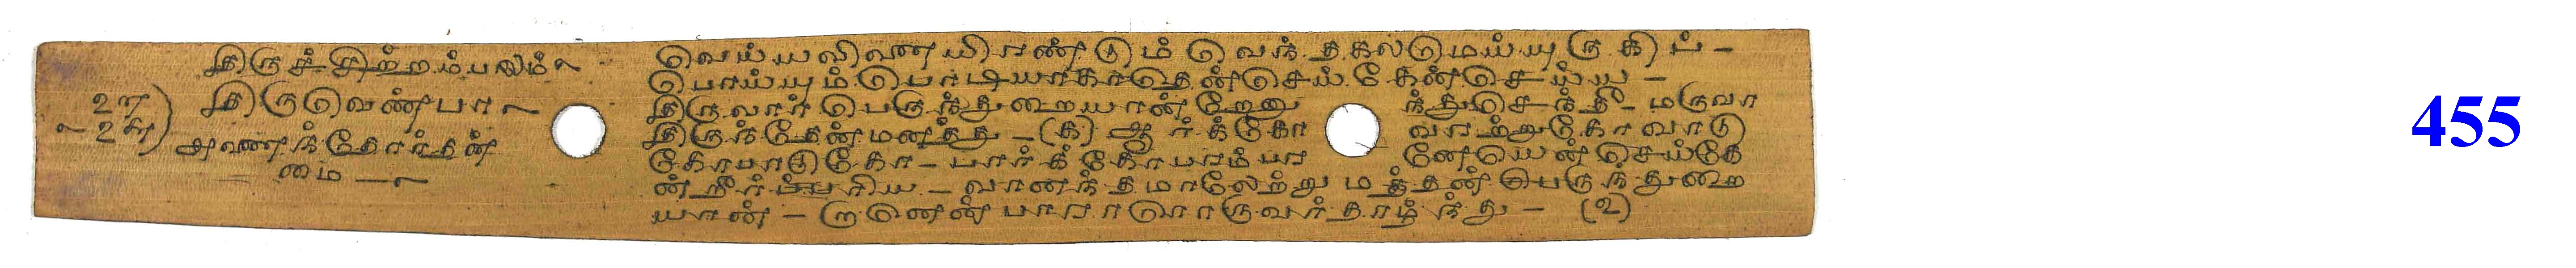 திருச்சிற்றம்பலம் ~
௨௭
திருவெண்பா ~
~ ௨௯
அணைந்தோர்தன்
மை — ~
வெய்யவினையிரண்டும் வெந்தகலமெய்யுருகிப் -
பொய்யும்பொடியாகாதென்செய்கேன்செய்ய -
திருவார்பெருந்துறையான்றேனு ந்துசெந்தீ - மருவா
திருந்தேன்மனத்து - (௧) ஆர்க்கோ வாற்றுகோவாடு
கோபாடுகோ - பார்க்கோபரம்பர னேயென்செய்கே
ன்றீர்ப்பரிய - வானந்தமாலேற்று மத்தன்பெருந்துறை
யான் - றானென்பாராரொருவர்தாழ்ந்து - (௨)
455